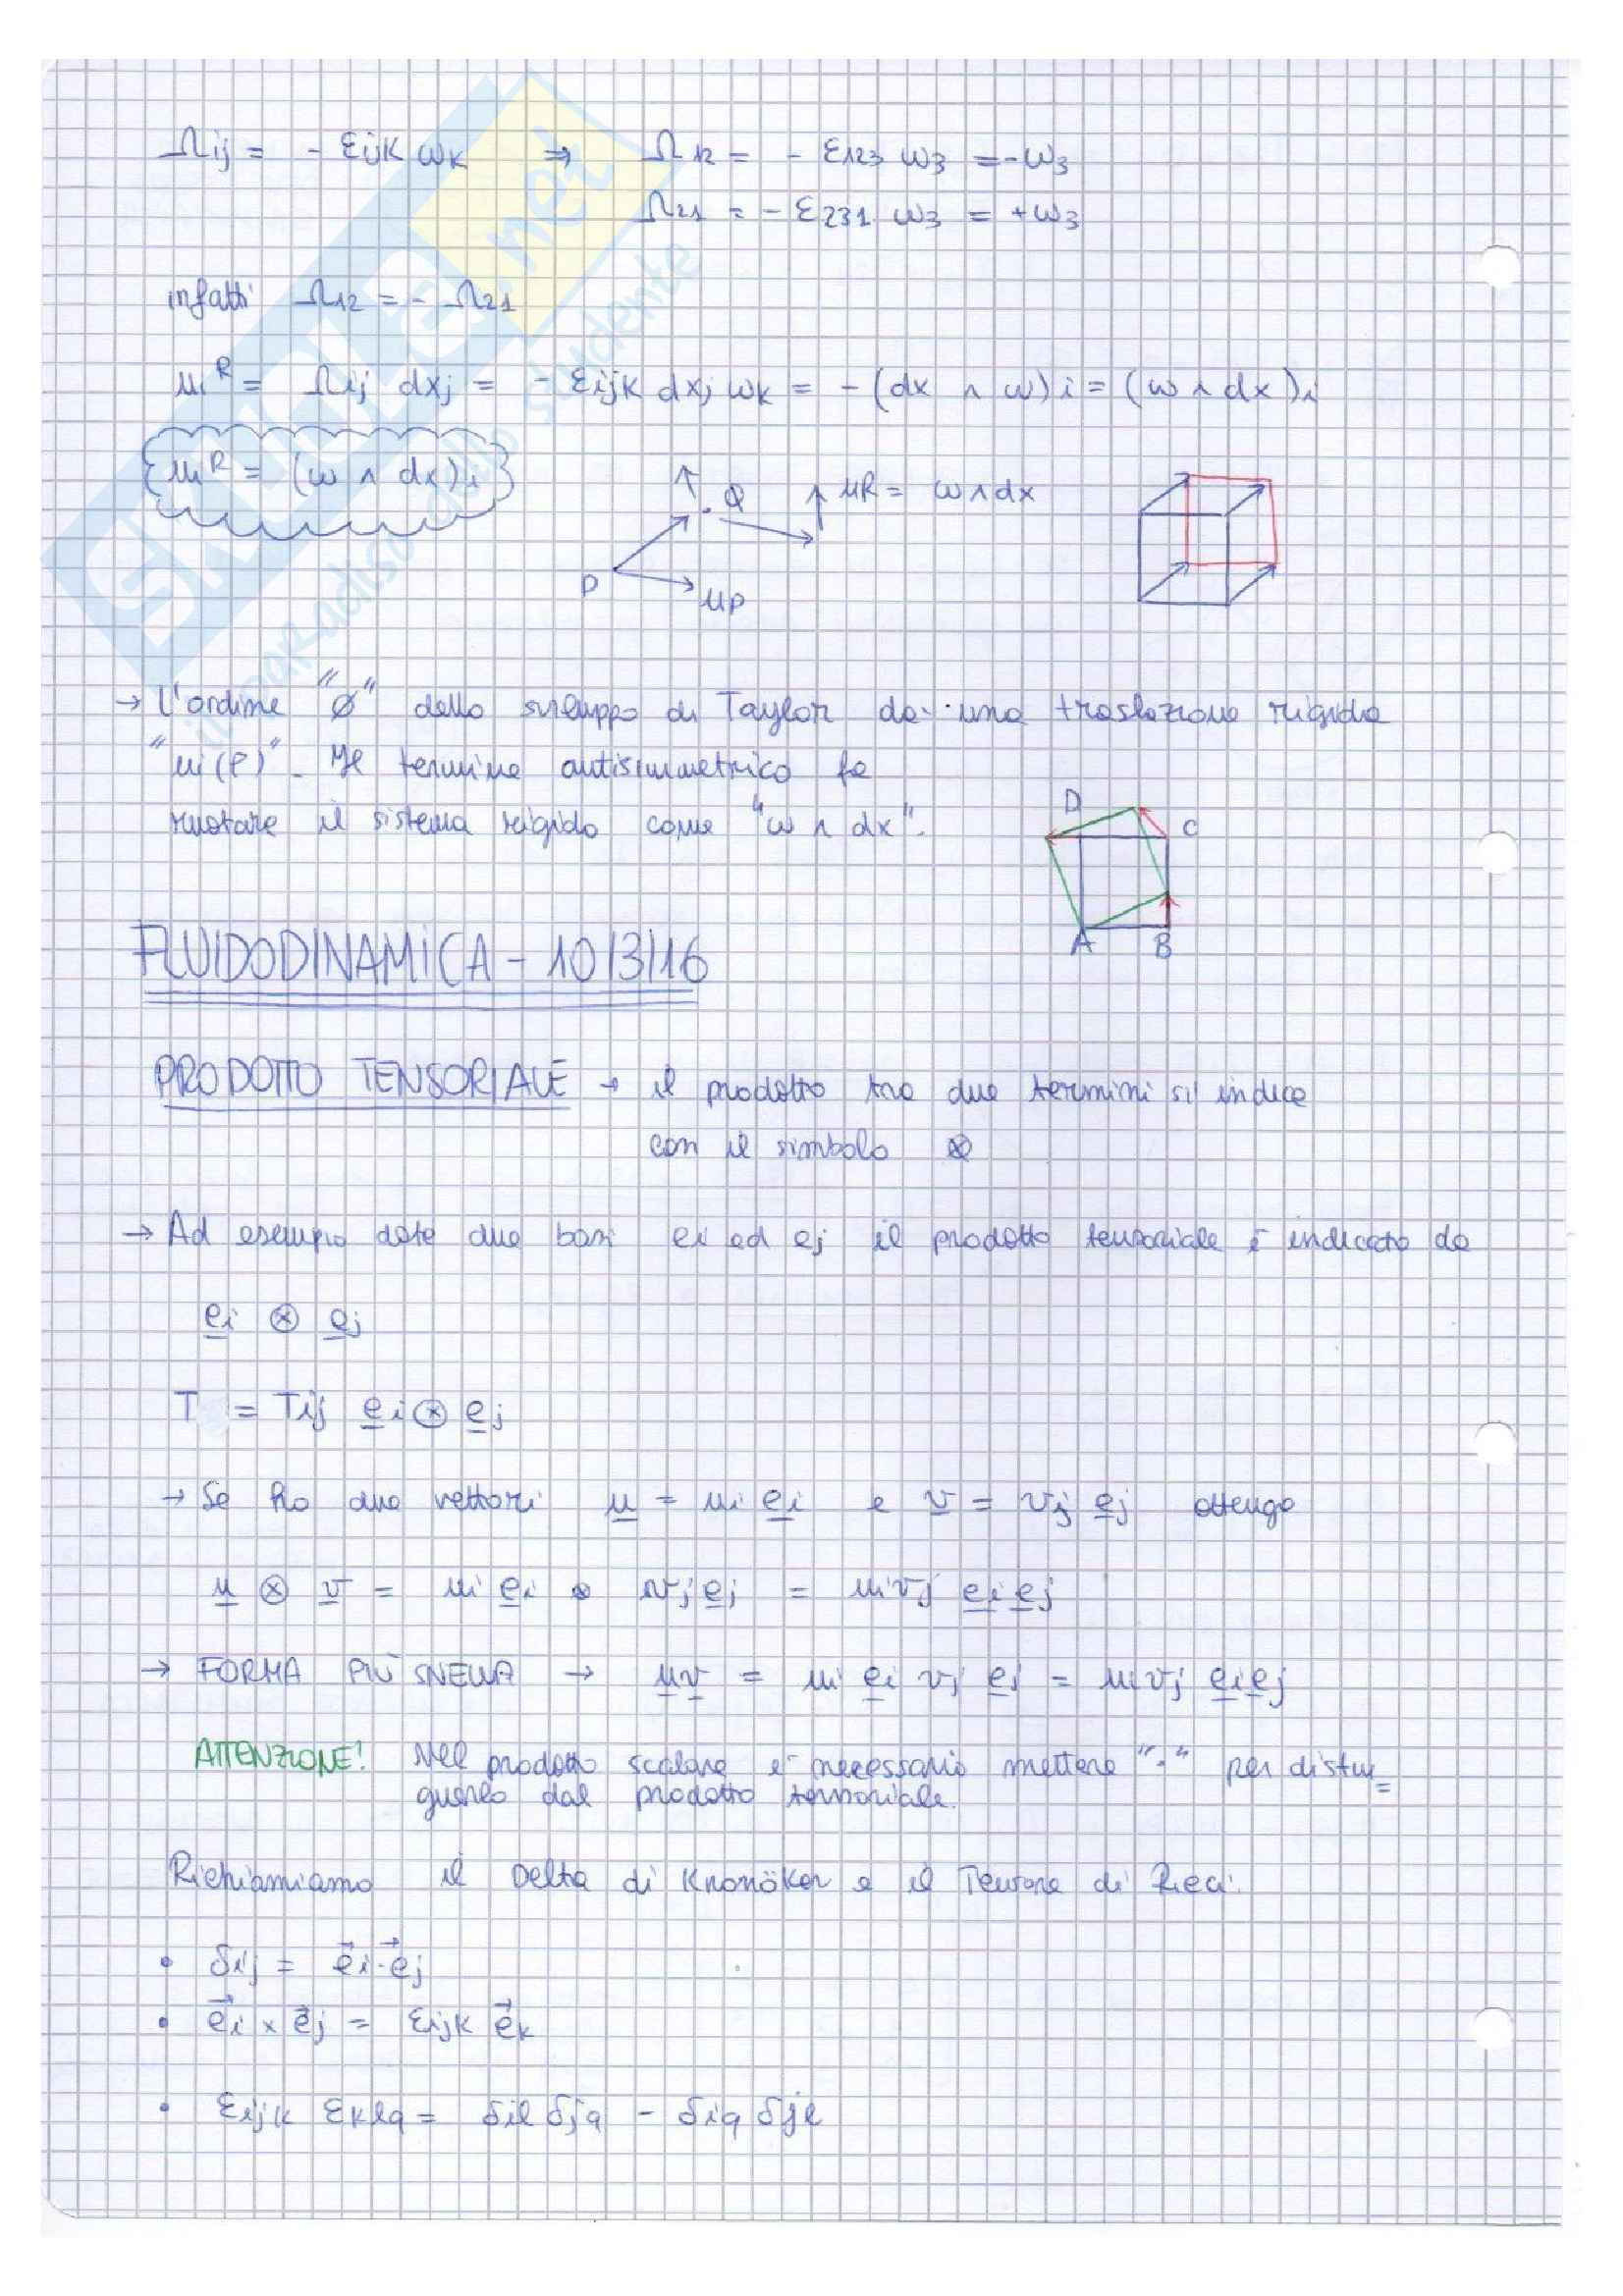 Ωij = - εijk ωk ⇒ Ω12 = - ε123 ω3 = -ω3
Ω21 = - ε231 ω3 = +ω3
infatti Ω12 = - Ω21
ui^R = Ωij dxj = - εijk dxj ωk = - (dx ∧ ω)i = (ω ∧ dx)i
ui^R = (ω ∧ dx)i
Q uR = ω∧dx
P uP
→ L'ordine "Ø" dello sviluppo di Taylor da una traslazione rigida
"ui(P)". Il termine antisimmetrico fa
ruotare il sistema rigido come "ω ∧ dx".
D C
A B
FLUIDODINAMICA - 10/3/16
PRODOTTO TENSORIALE → il prodotto tra due termini si indica
con il simbolo ⊗
→ Ad esempio date due basi ei ed ej il prodotto tensoriale è indicato da
ei ⊗ ej
T = Tij ei ⊗ ej
→ Se ho due vettori u = ui ei e v = vj ej ottengo
u ⊗ v = ui ei ⊗ vj ej = ui vj ei ej
→ FORMA PIÙ SNELLA → uv = ui ei vj ej = ui vj ei ej
ATTENZIONE! Nel prodotto scalare è necessario mettere "·" per distin=
guerlo dal prodotto tensoriale.
Richiamiamo il Delta di Kronöker e il Tensore di Ricci.
• δij = e⃗i · e⃗j
• e⃗i × e⃗j = εijk e⃗k
• εijk εklq = δil δjq - δiq δjl
SKUOLA.net
il paradiso dello studente